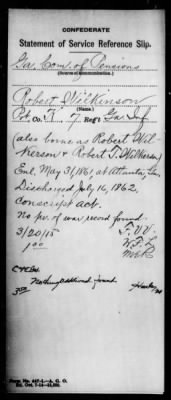 CONFEDERATE
Statement of Service Reference Slip.
Ga. Com. of Pensions
(Source of communication.)
Robert Wilkinson
(Name)
Pvt. Co. K 7 Reg't Ga Inf
(also borne as Robert Wil-
kerson & Robert T. Wilkerson)
Enl. May 31, 1861, at Atlanta, Ga.
Discharged July 16, 1862,
Conscript act.
No pr. of war record found.
3/20/15
1 00
Nothing additional found
Form No. 447-1—A. G. O.